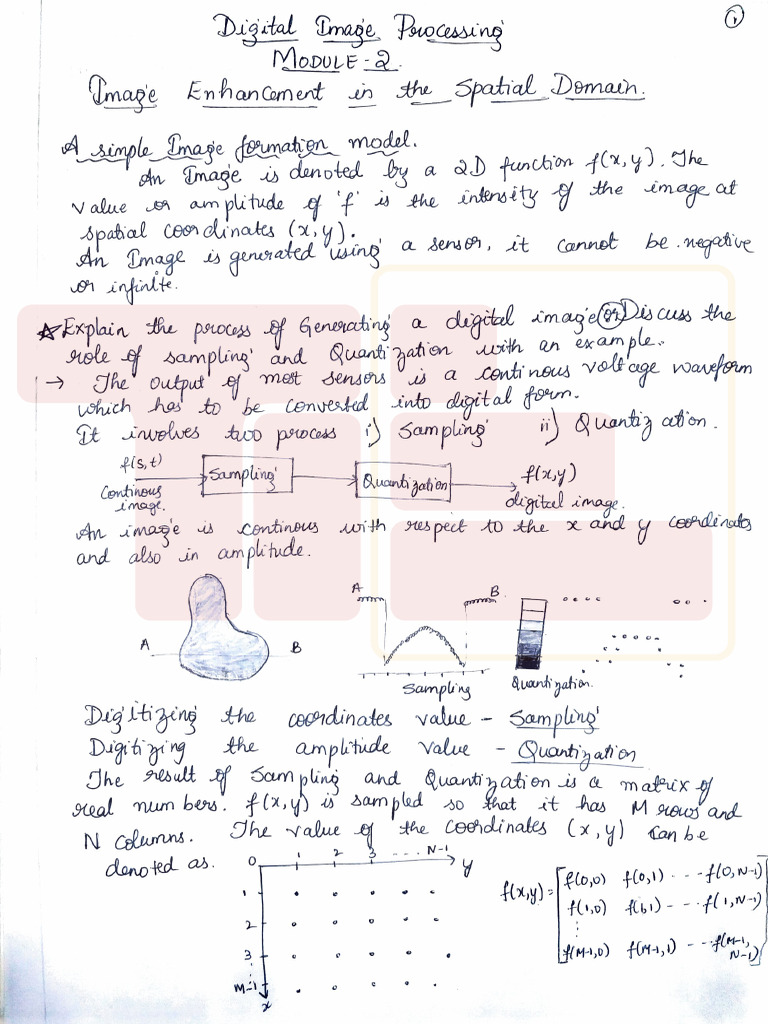 1
Digital Image Processing
MODULE-2.
Image Enhancement in the Spatial Domain.
A simple Image formation model.
An Image is denoted by a 2D function f(x,y). The
value or amplitude of 'f' is the intensity of the image at
spatial coordinates (x,y).
An Image is generated using a sensor, it cannot be negative
or infinite.
☆ Explain the process of Generating a digital image (or) Discuss the
role of sampling and Quantization with an example.
→ The output of most sensors is a continous voltage waveform
which has to be converted into digital form.
It involves two process i) Sampling ii) Quantization.
f(s,t) Sampling Quantization f(x,y)
Continous image. digital image.
An image is continous with respect to the x and y coordinates
and also in amplitude.
A B A B
Sampling Quantization.
Digitizing the coordinates value - Sampling
Digitizing the amplitude value - Quantization
The result of Sampling and Quantization is a matrix of
real numbers. f(x,y) is sampled so that it has M rows and
N columns. The value of the coordinates (x,y) can be
denoted as.
0 1 2 3 .... N-1 y
1
2
3
M-1
x
f(x,y) = f(0,0) f(0,1) ---- f(0,N-1)
f(1,0) f(1,1) ---- f(1,N-1)
f(M-1,0) f(M-1,1) --- f(M-1, N-1)